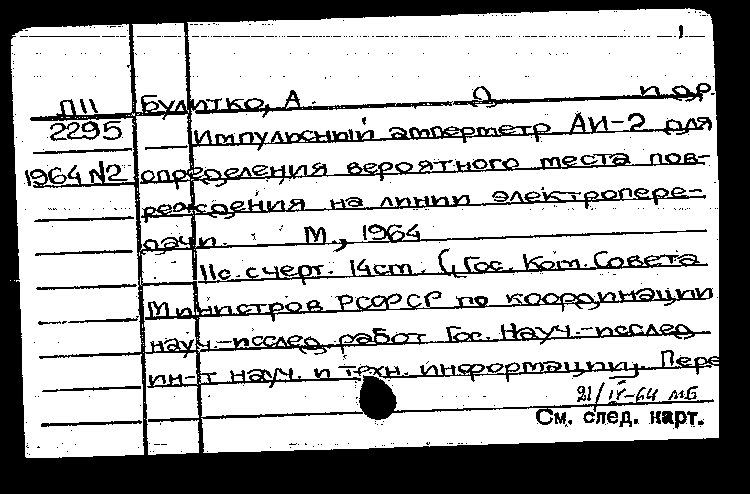 1
П11 Булитко, А. О и др
2295 Импульсный амперметр АИ-2 для
1964 №2 определения вероятного места пов-
реждения на линии электропере-
дачи. М., 1964
11с. с черт. 14см. (Гос. Ком. Совета
Министров РСФСР по координации
науч.-исслед. работ Гос. Науч.-исслед
ин-т науч. и техн. информации. Пере
21/IV-64 МБ
См. след. карт.